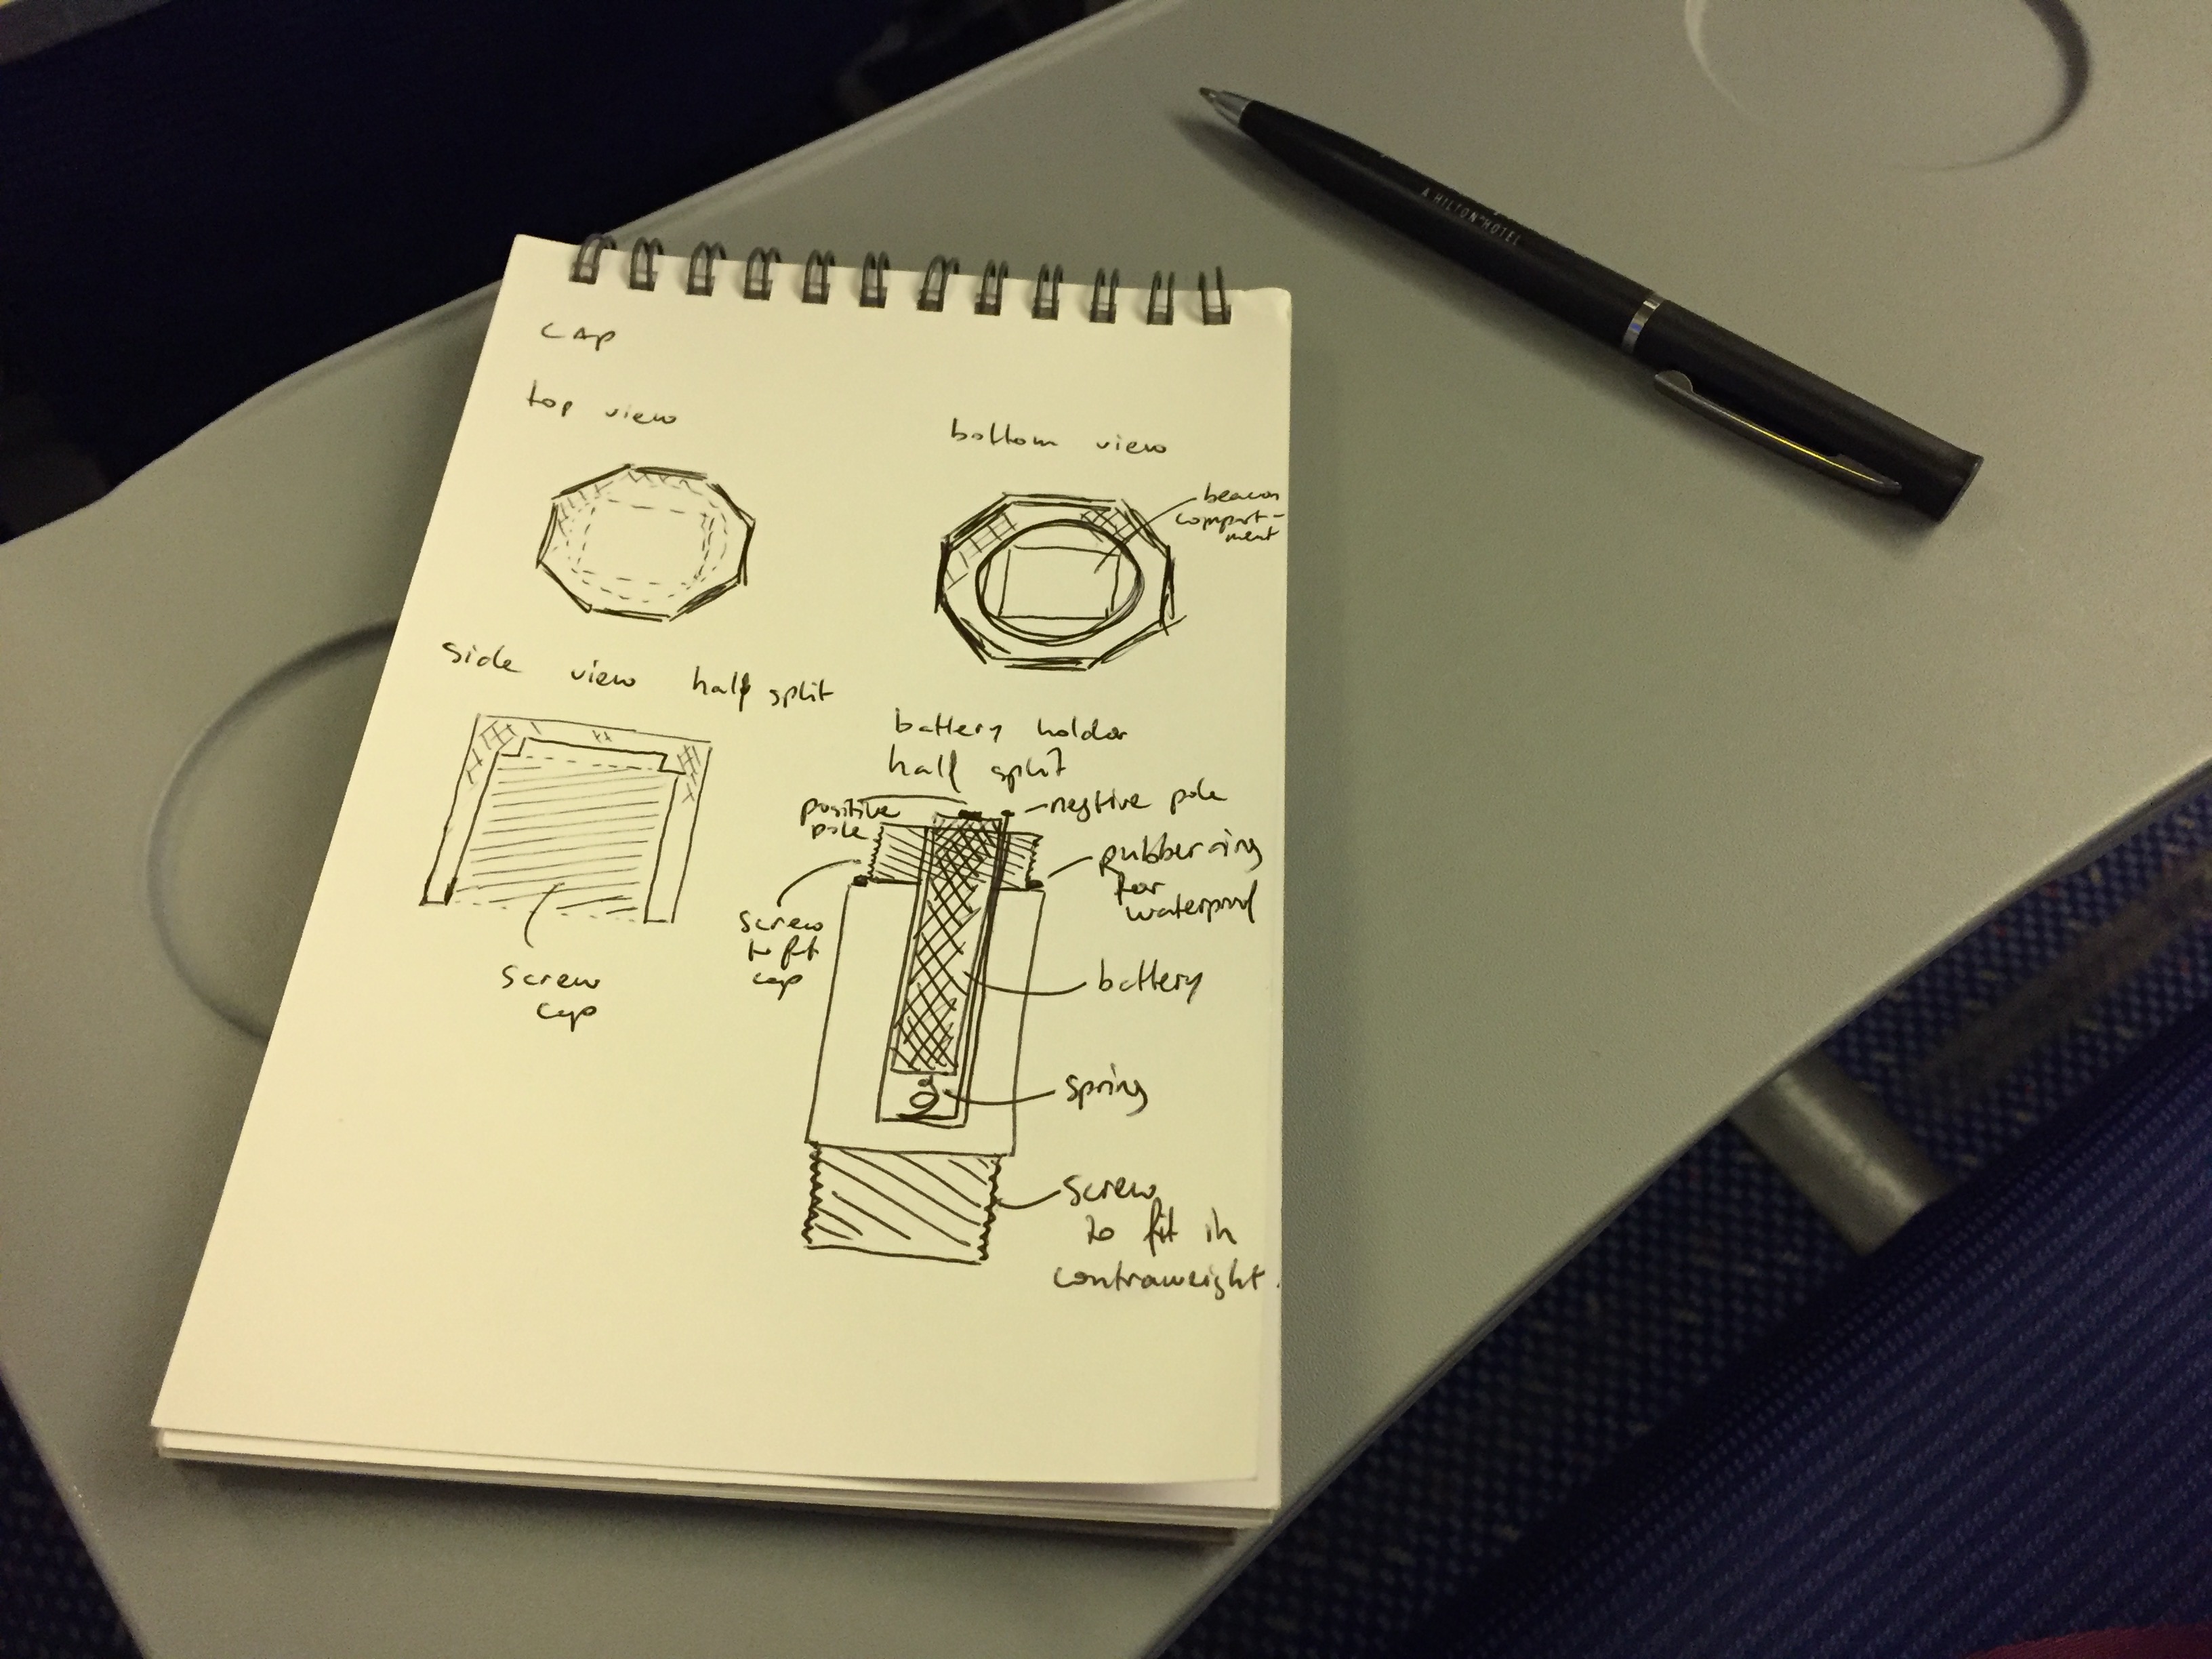 CAP
top view
bottom view
beacon
compart-
ment
side view half split
screw
cap
battery holder
half split
positive
pole
negtive pole
rubber ring
for
waterproof
screw
to fit
cap
battery
spring
screw
to fit in
contraweight.
A HILTON HOTEL